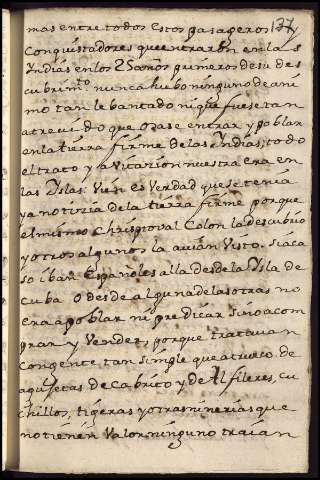 137
mas entre todos estos pasageros y
Conquistadores que entraron en las
Indias en los 25 años primeros de su des
cubrim.to nunca hubo ninguno de ani
mo tan lebantado ni que fuese tan
atrevido que osase entrar y poblar
en la tierra firme de las Indias; todo
el trato y avitazion nuestra era en
las Yslas. Vien es Verdad que se tenia
ya notizia de la tierra firme porque
el mismo Christoval Colon la descubrio
y otros algunos la avian Visto. Si aca
so iban Españoles alla desde la Ysla de
Cuba o desde alguna de las otras no
era a poblar ni predicar sino a com
prar y Vender, porque tratavan
con gente tan simple que a trueco de
agujetas de Cabrito y de Alfileres, cu
chillos, tigeras y otras ninerias que
no tienen Valor ninguno traian